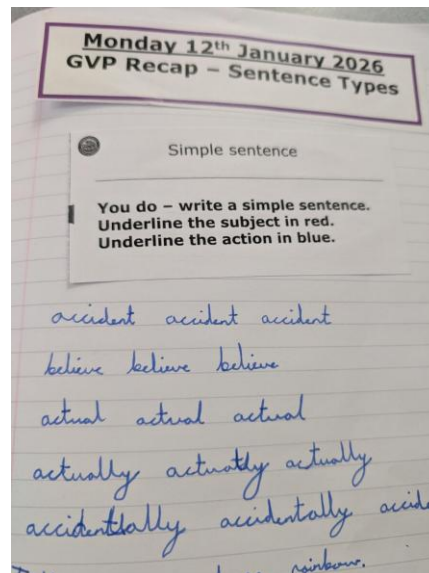 Monday 12th January 2026
GVP Recap – Sentence Types
Simple sentence
You do – write a simple sentence.
Underline the subject in red.
Underline the action in blue.
accident accident accident
believe believe believe
actual actual actual
actually actually actually
accidentally accidentally accid
rainbow.